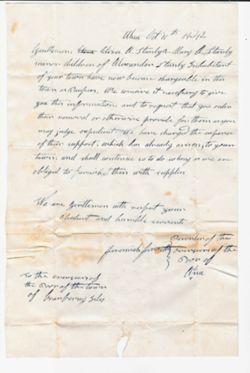 Oct 11th 1842
Gentlemen, Clara A. Stanly & Mary A. Stanly
minor children of Alexander Stanly Inhabitant
of your town have now become chargeable in this
town as paupers. We conceive it necessary to give
you this information, and to request that you order
their removal or otherwise provide for them as you
may judge expedient. We have charged the expense
of their support, which has already arisen, to your
town; and shall continue so to do so long as we are
obliged to furnish them with supplies
We are Gentlemen with respect your
obedient and humble servants
Jeremiah
Overseers of the
Poor of
To the overseers of
the Poor of the town
of Cranberry Isles